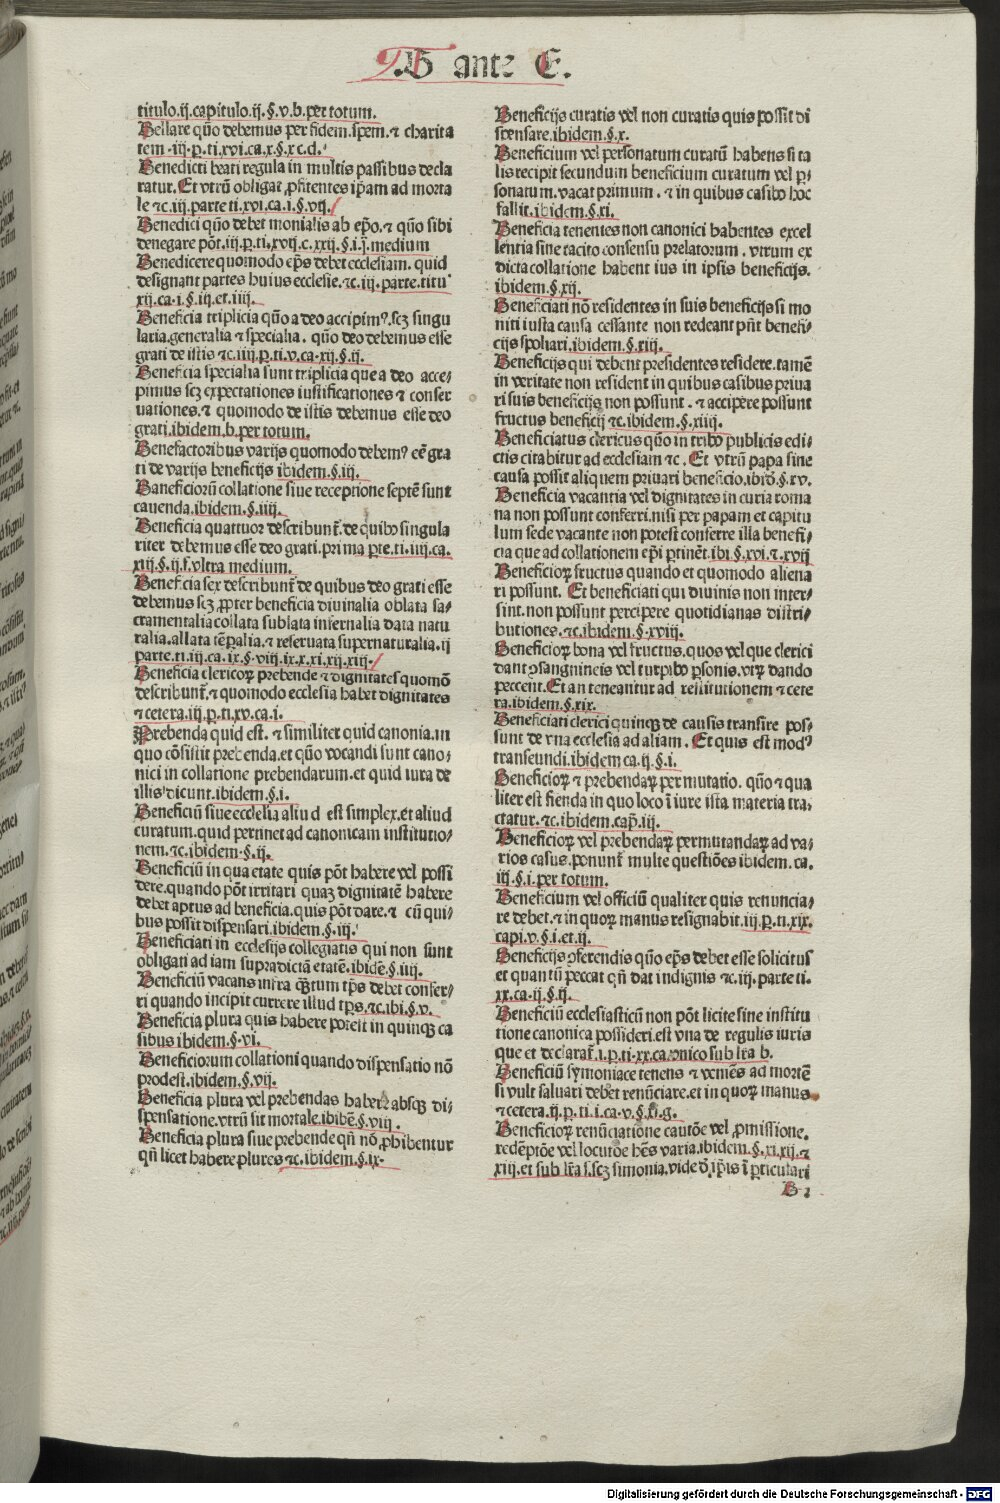 B ante E.
titulo.ij.capitulo.ij.§.v.b.per totum.
Bellare qūo debemus per fidem.spem.⁊ charita
tem.iij.p.ti.xvi.ca.x.§.x c.d.
Benedicti beati regula in multis passibus decla
ratur.Et vtrū obligat ꝓfitentes ip̄am ad morta
le ⁊c.iij.parte ti.xvi.ca.i.§.vij.
Benedici qūo debet monialis ab ep̄o.⁊ qūo sibi
denegare pōt.iij.p.ti.xvij.c.xxij.§.i.j.medium
Benedicere quomodo ep̄s debet ecclesiam. quid
designant partes huius ecclesie.⁊c.iij.parte.titu
xij.ca.i.§.iij.et.iiij.
Beneficia triplicia qūo a deo accipim⁹.scꝫ singu
laria.generalia ⁊ specialia. qūo deo debemus esse
grati de istis ⁊c.iiij.p.ti.v.ca.xij.§.ij.
Beneficia specialia sunt triplicia que a deo acce-
pimus scꝫ expectationes iustificationes ⁊ conser
uationes.⁊ quomodo de istis debemus esse deo
grati.ibidem.b.per totum.
Benefactoribus varijs quomodo debem⁹ eē gra
ti de varijs beneficijs ibidem.§.iij.
Baneficiorū collatione siue receptione septē sunt
cauenda.ibidem.§.iiij.
Beneficia quattuor describunt̄.de quibꝰ singula
riter debemus esse deo grati.prima p̄te.ti.iiij.ca.
xiij.§.ij.f.vltra medium.
Beneficia sex describunt̄ de quibus deo grati esse
debemus scꝫ ꝓpter beneficia diuinalia oblata sa-
cramentalia collata sublata infernalia data natu
ralia.allata tēꝑalia.⁊ reseruata supernaturalia.ij
parte.ti.iij.ca.ix.§.viij.ix.x.xi.xij.xiij.
Beneficia clericoꝝ prebende ⁊ dignitates quomō
describunt̄.⁊ quomodo ecclesia habet dignitates
⁊ cetera.iij.p.ti.xv.ca.i.
Prebenda quid est. ⁊ similiter quid canonia.in
quo cōsistit prebenda.et qūo vocandi sunt cano-
nici in collatione prebendarum.et quid iura de
illis dicunt.ibidem.§.i.
Beneficiū siue ecclesia aliud est simplex.et aliud
curatum.quid pertinet ad canonicam institutio-
nem.⁊c.ibidem.§.ij.
Beneficiū in qua etate quis pōt habere vel possi
dere.quando pōt irritari quaꝫ dignitatē habere
debet aptus ad beneficia.quis pōt dare.⁊ cū qui-
bus possit dispensari.ibidem.§.iij.
Beneficiati in ecclesijs collegiatis qui non sunt
obligati ad iam supradictā etatē.ibidē.§.iiij.
Beneficiū vacans infra q̄ntum tp̄s debet confer-
ri quando incipit currere illud tp̄s.⁊c.ibi.§.v.
Beneficia plura quis habere potest in quinqꝫ ca
sibus ibidem.§.vi.
Beneficiorum collationi quando dispensatio nō
prodest.ibidem.§.vij.
Beneficia plura vel prebendas habere absqꝫ di-
spensatione.vtrū sit mortale.ibibē.§.viij.
Beneficia plura siue prebende qn̄ nō ꝓhibentur
qn̄ licet habere plures ⁊c.ibidem.§.ix.
Beneficijs curatis vel non curatis quis possit di
spensare.ibidem.§.x.
Beneficium vel personatum curatū habens si ta
lis recipit secundum beneficium curatum vel ꝑ-
sonatum.vacat primum. ⁊ in quibus casibꝰ hoc
fallit.ibidem.§.xi.
Beneficia tenentes non canonici habentes excel
lentia sine tacito consensu prelatorum. vtrum ex
dicta collatione habent ius in ipsis beneficijs.
ibidem.§.xij.
Beneficiati nō residentes in suis beneficijs si mo
niti iusta causa cessante non redeant pn̄t benefi-
cijs spoliari.ibidem.§.xiij.
Beneficijs qui debent presidentes residere.tamē
in veritate non resident in quibus casibus priua
ri suis beneficijs non possunt. ⁊ accipere possunt
fructus beneficij ⁊c.ibidem.§.xiiij.
Beneficiatus clericus qūo in tribꝰ publicis edi-
ctis citabitur ad ecclesiam ⁊c. Et vtrū papa sine
causa possit aliquem priuari beneficio.ibid̄.§.xv.
Beneficia vacantia vel dignitates in curia roma
na non possunt conferri.nisi per papam et capitu
lum sede vacante non potest conferre illa benefi-
cia que ad collationem ep̄i ꝑtinēt.ibi §.xvi.⁊.xvij
Beneficioꝝ fructus quando et quomodo aliena
ri possunt. Et beneficiati qui diuinis non inter-
sint.non possunt percipere quotidianas distri-
butiones.⁊c.ibidem.§.xviij.
Beneficioꝝ bona vel fructus.quos vel que clerici
dant ꝯsanguineis vel turpibꝰ ꝑsonis.vtꝝ dando
peccent.Et an teneantur ad restitutionem ⁊ cete
ra.ibidem.§.xix.
Beneficiati clerici quinqꝫ de causis transire pos-
sunt de vna ecclesia ad aliam. Et quis est mod⁹
transeundi.ibidem ca.ij.§.i.
Beneficioꝝ ⁊ prebendaꝝ permutatio. qūo ⁊ qua
liter est fienda in quo loco ī iure ista materia tra-
ctatur.⁊c.ibidem.cap̄.iij.
Beneficioꝝ vel prebendaꝝ permutandaꝝ ad va-
rios casus.ponunt̄ multe questiōes ibidem.ca.
iij.§.i.per totum.
Beneficium vel officiū qualiter quis renuncia-
re debet.⁊ in quoꝝ manus resignabit.iij.p.ti.xix.
capi.v.§.i.et.ij.
Beneficijs ꝯferendis qūo ep̄s debet esse solicitus
et quantū peccat qn̄ dat indignis ⁊c.iij.parte ti.
xx.ca.ij.§.ij.
Beneficiū ecclesiasticū non pōt licite sine institu
tione canonica possideri.est vna de regulis iuris
que et declarat̄.i.p.ti.xx.canonico sub lr̄a b.
Beneficiū symoniace tenens ⁊ veniēs ad mortē
si vult saluari debet renūciare.et in quoꝝ manus
⁊ cetera.ij.p.ti.i.ca.v.§.g.
Beneficioꝝ renūciatione cautōe vel ꝓmissione.
redēptōe vel locutōe hēs varia.ibidem.§.xi.xij.⁊
xiij.et sub lr̄a s.scꝫ simonia.vide d̄.ip̄is ī ꝑticulari
B 2
Digitalisierung gefördert durch die Deutsche Forschungsgemeinschaft - DFG